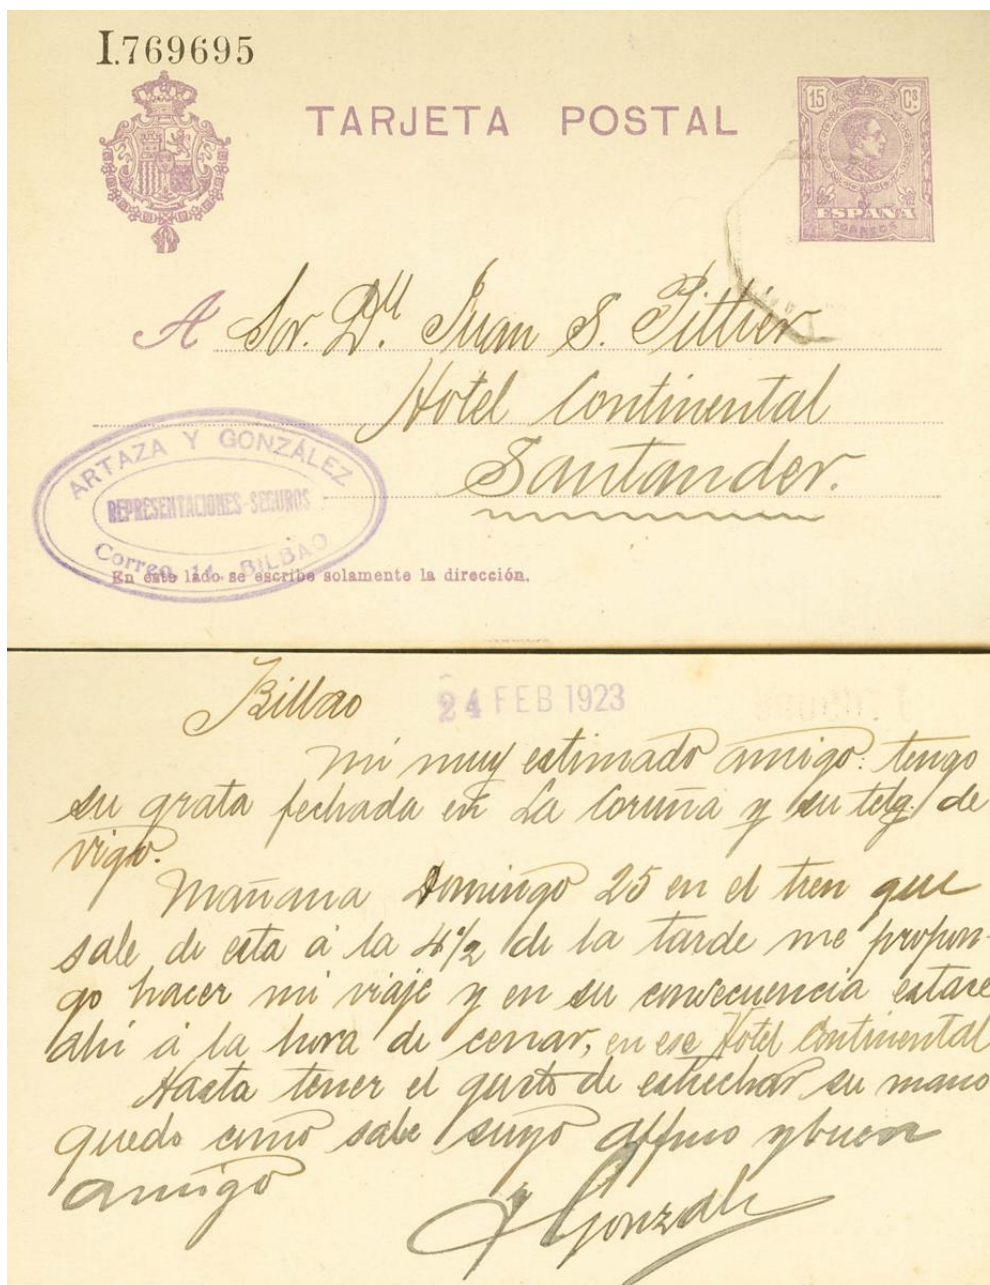 I.769695
TARJETA POSTAL
15 Cs
ESPAÑA
CORREOS
A Sor. Dn Juan S. Pittier
Hotel Continental
Santander.
ARTAZA Y GONZÁLEZ
REPRESENTACIONES-SEGUROS
Correo, 14. BILBAO
En este lado se escribe solamente la dirección.
Bilbao 24 FEB 1923
Mi muy estimado amigo: tengo
su grata fechada en La Coruña y su telg. de
Vigo.
Mañana Domingo 25 en el tren que
sale de esta á la 4½ de la tarde me propon-
go hacer mi viaje y en su consecuencia estare
ahi á la hora de cenar, en ese Hotel Continental
Hasta tener el gusto de estrechar su mano
quedo como sabe suyo affmo y buen
amigo
Gonzalez